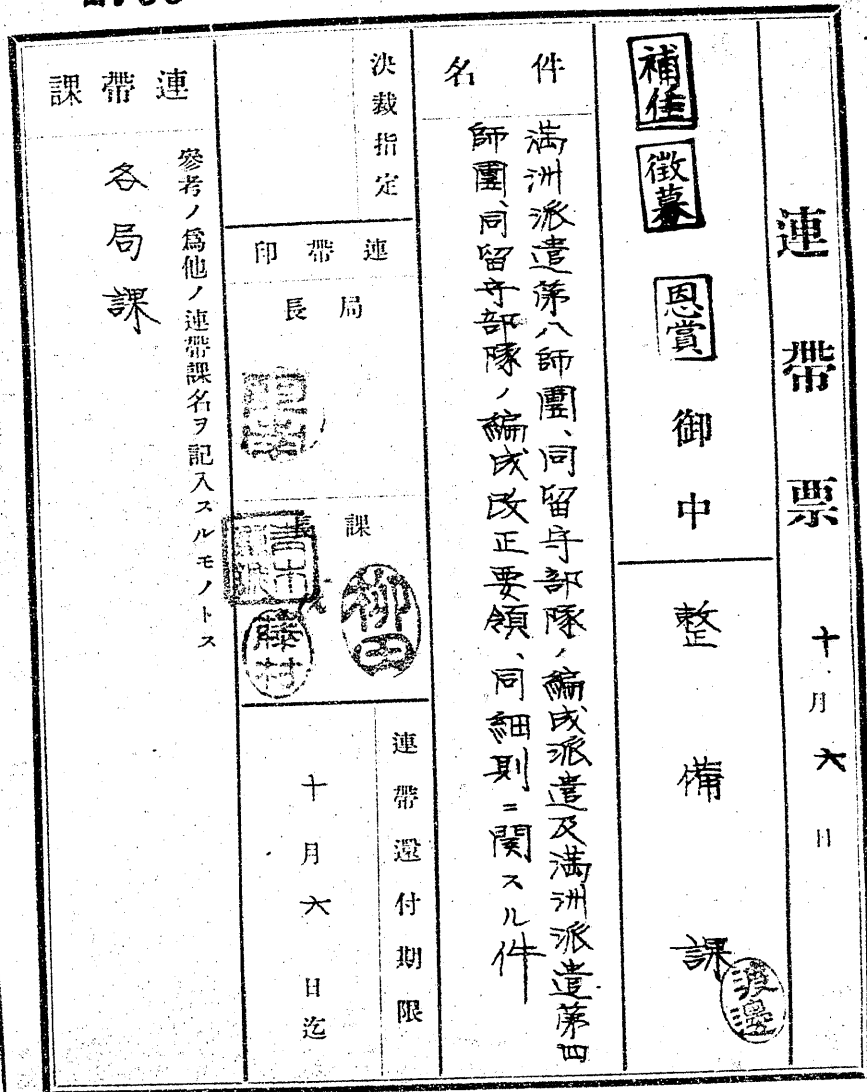 連帶票
十月六日
補任
徴募
恩賞
御中
整備課
渡邊
件名
満洲派遣第八師團、同留守部隊ノ編成派遣及満洲派遣第四
師團、同留守部隊ノ編成改正要領、同細則ニ関スル件
決裁指定
連帶印
局長
課長
柳田
藤村
連帶還付期限
十月六日迄
連帶課
參考ノ爲他ノ連帶課名ヲ記入スルモノトス
各局課